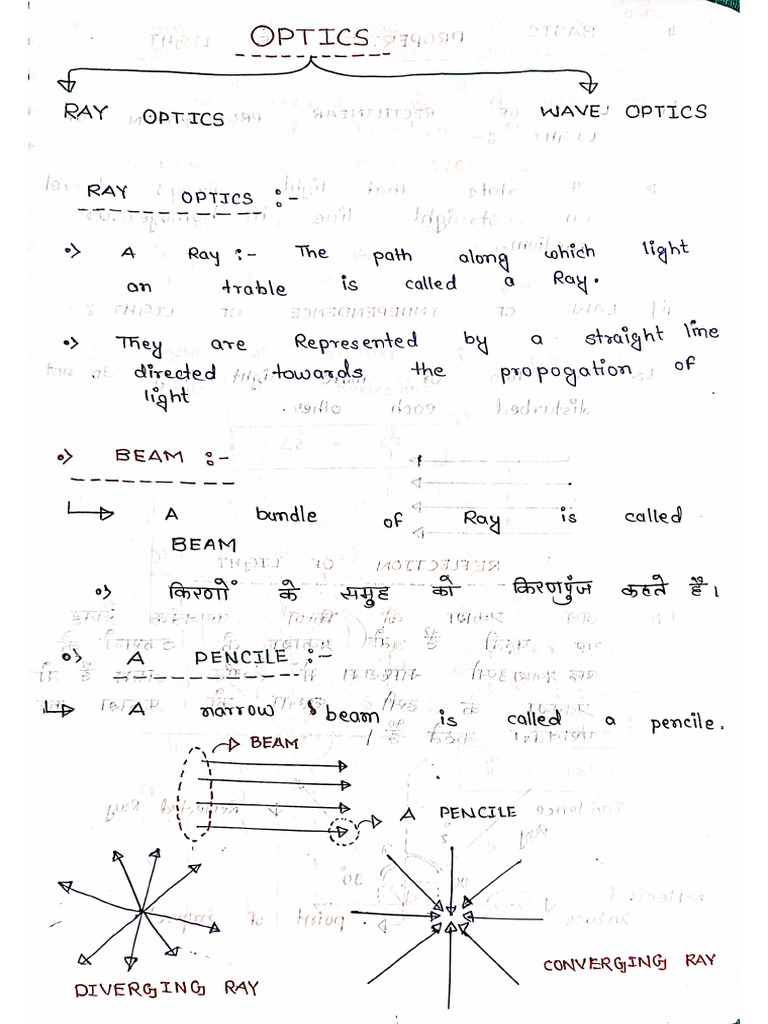 OPTICS
RAY OPTICS
WAVE OPTICS
RAY OPTICS :-
A Ray :- The path along which light
an trable is called a Ray.
They are Represented by a straight line
directed towards the propogation of
light
BEAM :-
A bundle of Ray is called
BEAM
किरणों के समुह को किरणपुंज कहते हैं।
A PENCILE :-
A narrow beam is called a pencile.
BEAM
A PENCILE
DIVERGING RAY
CONVERGING RAY